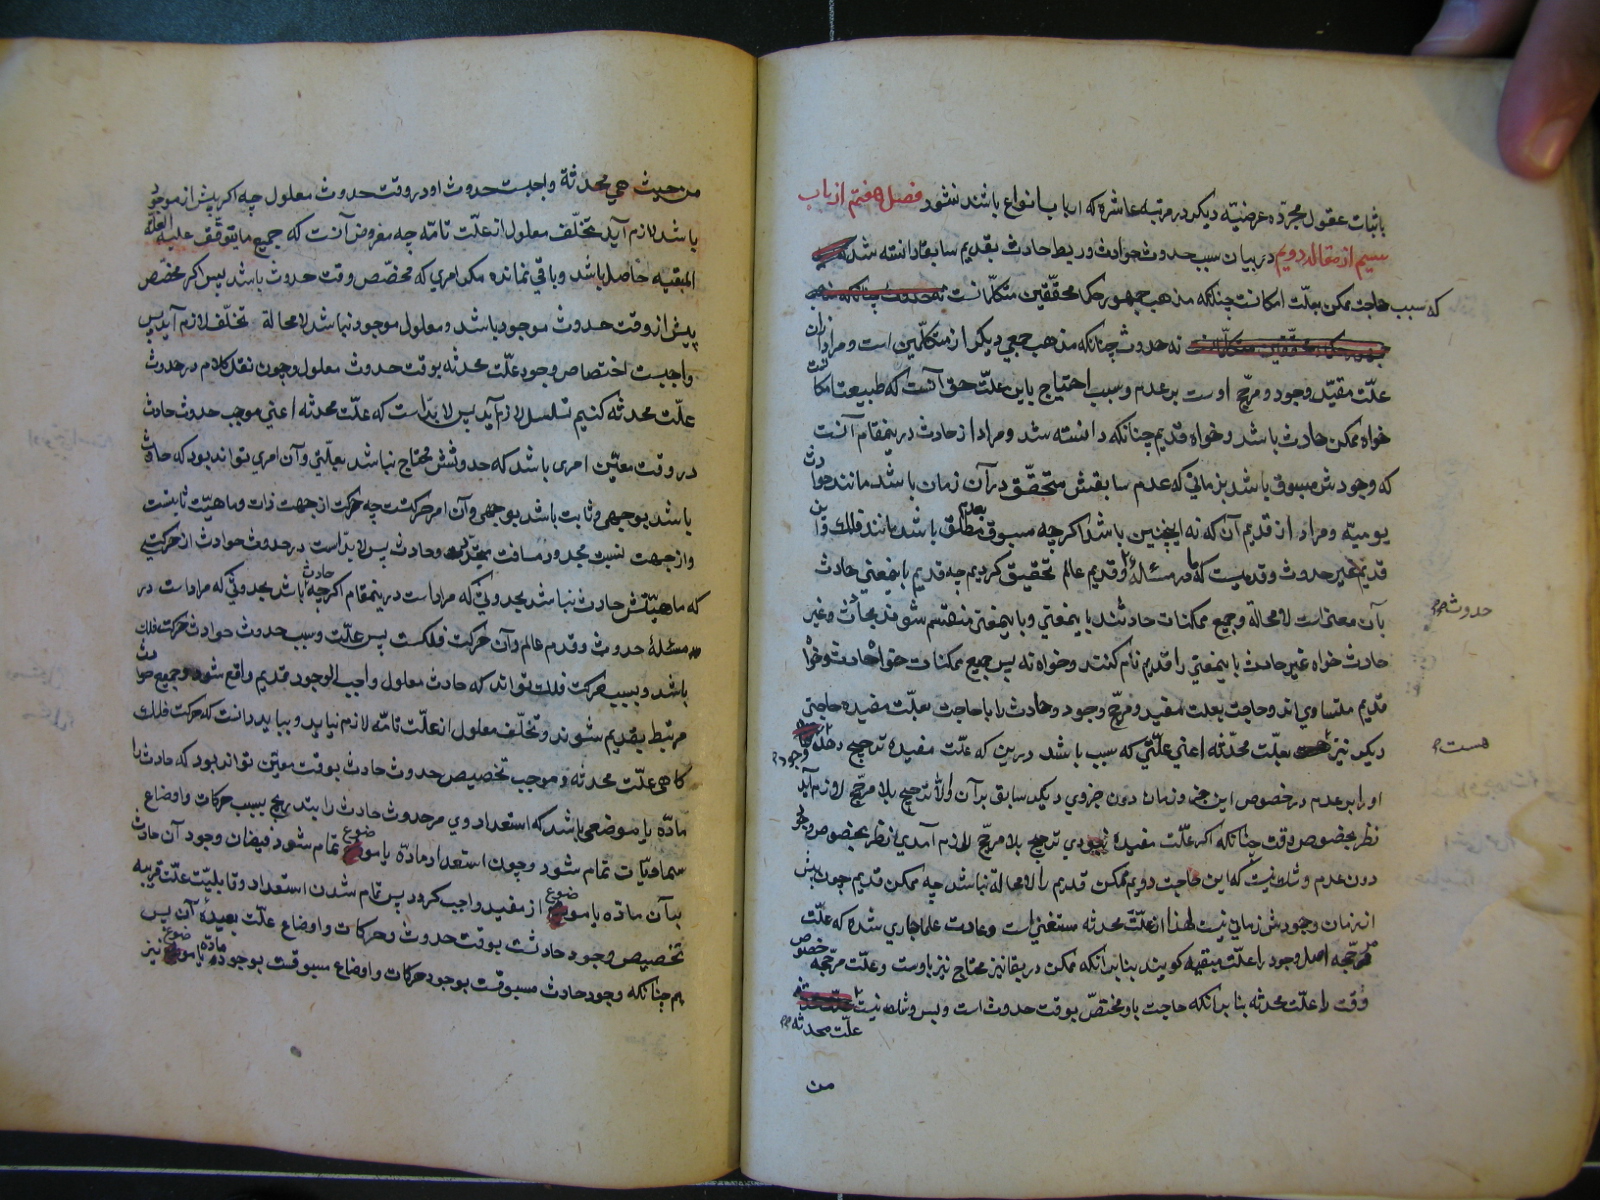 باثبات عقول مجرّده عرضیّه دیگر در مرتبه عاشره که ارباب انواع باشند نشود فصل هفتم از باب
سیم از مقاله دویم در بیان سبب حدوث حوادث و ربط حادث بقدیم سابقا دانسته شد
که سبب حاجت ممکن بعلّت امکانست چنانکه مذهب جمهور حکما و محقّقین متکلّمانست
نه حدوث چنانکه مذهب جمعی دیگر از متکلّمین است و مراد از آن
علّت مفید وجود و مرجّح اوست بر عدم و سبب احتیاج باین علّت حق آنست که طبیعت امکانست
خواه ممکن حادث باشد و خواه قدیم چنانکه دانسته شد و مراد از حادث درینمقام آنست
که وجودش مسبوق باشد بزمانی که عدم سابقش متحقّق در آن زمان باشد مانند حوادث
یومیّه و مراد از قدیم آن که نه اینچنین باشد اگرچه مسبوق بعدم مطلق باشد مانند فلک و این
قدیم غیر حدوث و قدمیست که ما در مسئلهٔ حدوث و قدیم عالم تحقیق کردیم چه قدیم باینمعنی حادث
بآن معنی است لامحالة و جمیع ممکنات حادثند باینمعنی و باینمعنی منقسم شوند بحادث و غیر
حادث خواه غیر حادث باینمعنی را قدیم نام کنند و خواه نه پس جمیع ممکنات خواه حادث و خواه
قدیم متساوی‌اند در حاجت بعلت مفید و مرجّح وجود و حادث را با حاجت بعلّت مفیده حاجتی
دیگر نیز هست بعلّت محدثه اعنی علّتی که سبب باشد درین که علّت مفیده ترجیح دهد وجود
او را بر عدم در خصوص این جزء زمان دون جزوی دیگر سابق بر آن والّا ترجیح بلا مرجّح لازم آید
نظر بخصوص وقت چنانکه اگر علّت مفیده نبودی ترجیح بلا مرجّح لازم آمدی نظر بخصوص وجود
دون عدم و شک نیست که این حاجت دویم ممکن قدیم را لامحالة نباشد چه ممکن قدیم چون پیش
از زمان وجودش زمانی نیست لهذا از علّت محدثه مستغنی است و عادت علما جاری شده که علّت
مرجّحه اصل وجود را علّت مبقیه گویند بنابر آنکه ممکن در بقا نیز محتاج باوست و علّت مرجّحه خصوص
وقت را علّت محدثه بنابر آنکه حاجت باو مختصّ بوقت حدوث است و بس و شک نیست که
علّت محدثه صح
من
حدوث صح
هست صح
من حیث هی محدثة واجبست حدوث او در وقت حدوث معلول چه اگر پیش از موجود
باشد لازم آید تخلّف معلول از علّت تامّه چه مفروض آنست که جمیع مایتوقّف علیه العلّة
المبقیه حاصل باشد و باقی نمانده مگر امری که مخصّص وقت حدوث باشد پس اگر مخصّص
پیش از وقت حدوث موجود باشد و معلول موجود نباشد لامحالة تخلّف لازم آید پس
واجبست اختصاص وجود علّت محدثه بوقت حدوث معلول و چون نقل کلام در حدوث
علّت محدثه کنیم تسلسل لازم آید پس لابدّ است که علّت محدثه اعنی موجب حدوث حادث
در وقت معیّن امری باشد که حدوثش محتاج نباشد بعلّتی و آن امری تواند بود که حادث
باشد بوجهی و ثابت باشد بوجهی و آن امر حرکتست چه حرکت از جهت ذات و ماهیّت ثابتست
و از جهت نسبت بحدود مسافت متجدّد و حادث پس لابدّ است در حدوث حوادث از حرکتی
که ماهیّتش حادث نباشد بحدوثی که مراد است درینمقام اگرچه حادث باشد بحدوثی که مراد است در
مسئلهٔ حدوث و قدم عالم و آن حرکت فلکست پس علّت و سبب حدوث حوادث حرکت فلک
باشد و بسبب حرکت فلک تواند که حادث معلول واجب الوجود قدیم واقع شود و جمیع حوادث
مرتبط بقدیم شوند و تخلّف معلول از علّت تامّه لازم نیاید و بباید دانست که حرکت فلک
گاهی علّت محدثه و موجب تخصیص حدوث حادث بوقت معیّن تواند بود که حادث را
مادّه یا موضعی باشد که استعداد وی مر حدوث حادث را بتدریج بسبب حرکات و اوضاع
سماویّات تمام شود و چون استعداد مادّه یا موضوع تمام شود فیضان وجود آن حادث
بآن مادّه یا موضوع از مفید واجب گردد پس تمام شدن استعداد و قابلیّت علّت قریبه
تخصیص وجود حادثست بوقت حدوث و حرکات و اوضاع علّت بعیدهٔ آن پس
هم چنانکه وجود حادث مسبوقست بوجود حرکات و اوضاع مسبوقست بوجود مادّه یا موضوع نیز